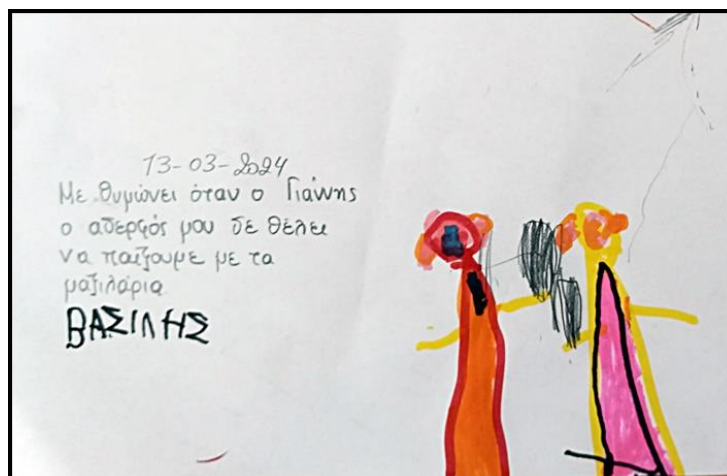 13-03-2024
Με θυμώνει όταν ο Γιάννης
ο αδερφός μου δε θέλει
να παίζουμε με τα
μαξιλάρια
ΒΑΣΙΛΗΣ